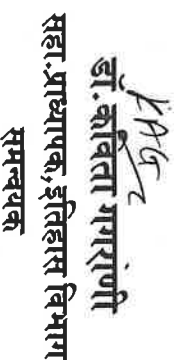 KAG
डॉ. कविता मगरांणी
सहा.प्राध्यापक,इतिहास विभाग
समन्वयक